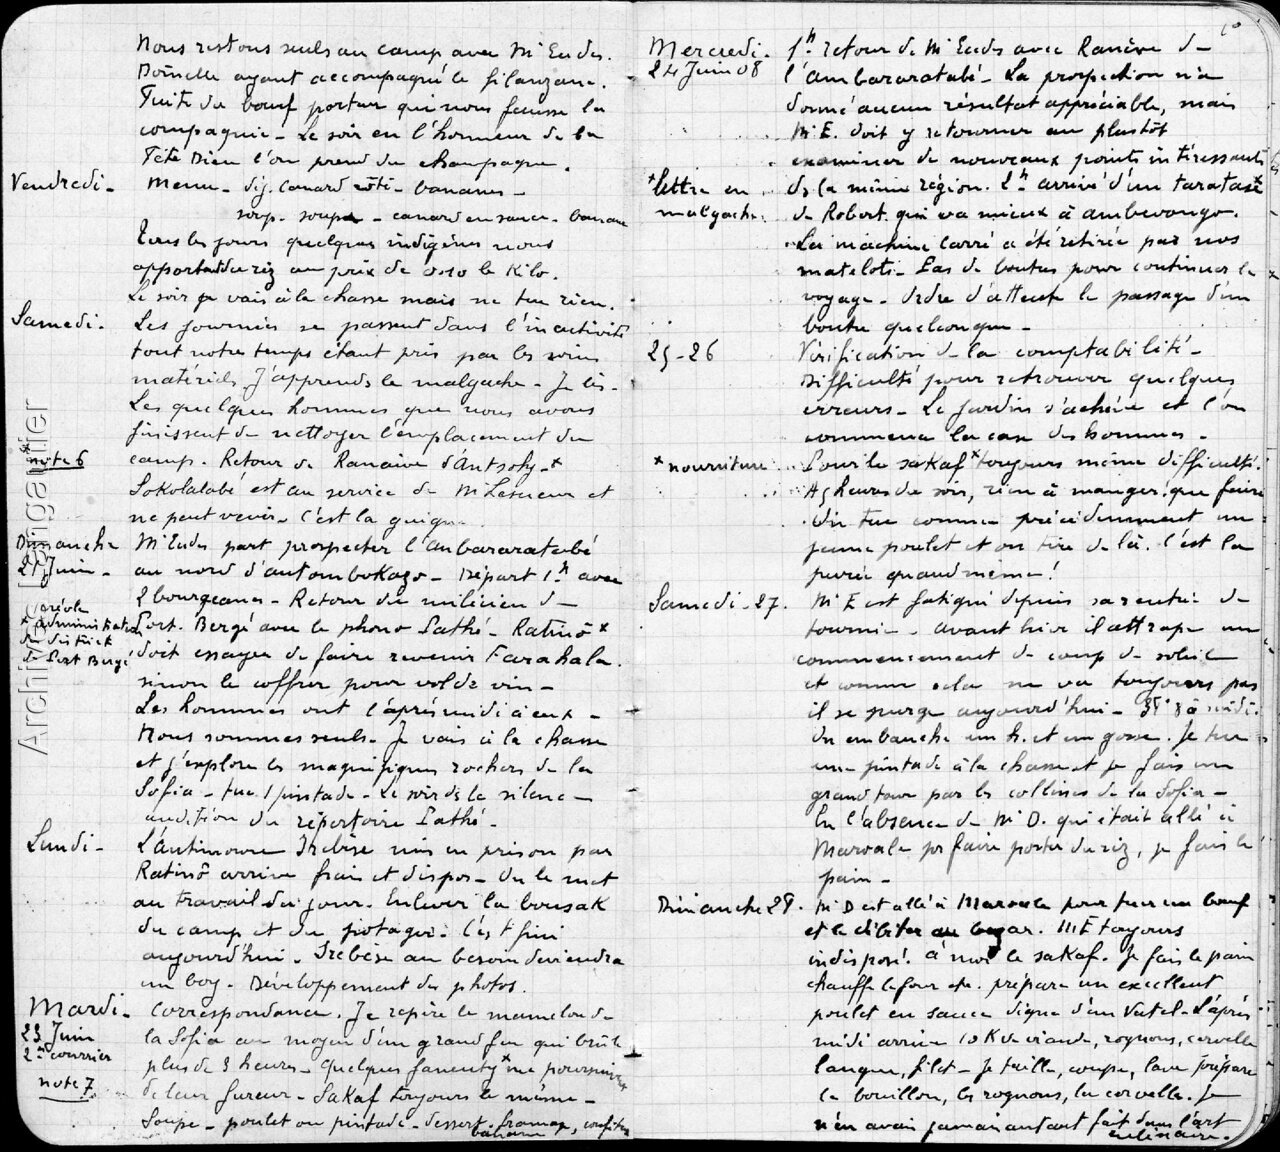 Nous restons seuls au camp avec Mr Eudes.
Boinelle ayant accompagné le filanzane.
Fuite du bœuf porteur qui nous fausse la
compagnie - Le soir en l'honneur de la
Fête Dieu l'on prend du champagne.
Vendredi - Menu - dej. canard rôti - bananes -
soup. soupe - canard en sauce - banane
Tous les jours quelques indigènes nous
apportent du riz au prix de 0.10 le Kilo.
Le soir je vais à la chasse mais ne tue rien.
Samedi - Les journées se passent dans l'inactivité
tout notre temps étant pris par les soins
matériels J'apprends le malgache - Je lis -
Les quelques hommes que nous avons
finissent de nettoyer l'emplacement du
* note 6 camp. Retour de Ranaive d'Antsohy - *
Sokolalabé est au service de Mr Lesueur et
ne peut venir - C'est la guigne
Dimanche Mr Eudes part prospecter l'ambararatabé
21 Juin - au nord d'antombokazo - Départ 1h avec
2 bourgeanes - Retour du milicien de
* créole administrateur Port. Bergé avec le phono Pathé - Ratinô *
du district doit essayer de faire revenir Farahala
de Port Bergé
sinon le coffrer pour vol de vin -
Les hommes ont l'après midi à eux -
Nous sommes seuls. Je vais à la chasse
et j'explore les magnifiques rochers de la
Sofia - tue 1 pintade - Le soir ds le silence
audition du répertoire Pathé -
Lundi - L'antimoure mis en prison par
Ratinô arrive frais et dispos - On le met
au travail du jour - Enlever la bousak
du camp et du potager. C'est fini
aujourd'hui - au besoin deviendra
un boy - Développement des photos.
Mardi - Correspondance. Je repère le mamelon de
23 Juin la Sofia au moyen d'un grand feu qui brûle
2e courrier plus de 3 heures - Quelques fanenty * me poursuivent
note 7 de leur fureur - Sakaf toujours le même -
Soupe - poulet ou pintade - dessert. fromage, confiture
banane
Mercredi - 1h retour de Mr Eudes avec Ranaive de
24 Juin 08 l'ambararatabé - La prospection n'a
donné aucun résultat appréciable, mais
Mr E. doit y retourner au plus tôt
examiner de nouveaux points intéressants
* lettre en de la même région. 2h arrivée d'un taratasé *
malgache de Robert qui va mieux à ambevongo.
La machine Carré a été retirée par nos
matelots - Pas de boutres pour continuer le
voyage - Ordre d'attendre le passage d'un
boutre quelconque -
25 - 26 Vérification de la comptabilité -
Difficulté pour retrouver quelques
erreurs - Le jardin s'achève et l'on
commence la case des hommes -
* nourriture Pour le sakaf * toujours même difficulté.
A 5 heures du soir, rien à manger ! que faire
On tue comme précédemment un
jeune poulet et on tire de là. C'est la
purée quand même !
Samedi - 27. Mr E est fatigué depuis sa rentrée de
tournée - avant hier il attrape un
commencement de coup de soleil
et comme cela ne va toujours pas
il se purge aujourd'hui - à midi.
On embauche un h. et un gosse. Je tue
une pintade à la chasse et je fais un
grand tour par les collines de la Sofia -
En l'absence de Mr D. qui était allé à
Marvale pr faire porter du riz, je fais le
pain -
Dimanche 28. Mr D est allé à Marvale pour tuer un bœuf
et le débiter au bazar. Mr E toujours
indisposé. à moi le sakaf. Je fais le pain
chauffe le four etc. prépare un excellent
poulet en sauce digne d'un Vatel - L'après
midi arrive 10 K de viande, rognons, cervelle
langue, filet - Je taille, coupe, lave prépare
le bouillon, les rognons, la cervelle. Je
n'en avais jamais autant fait dans l'art
culinaire.
Archives Brigatier